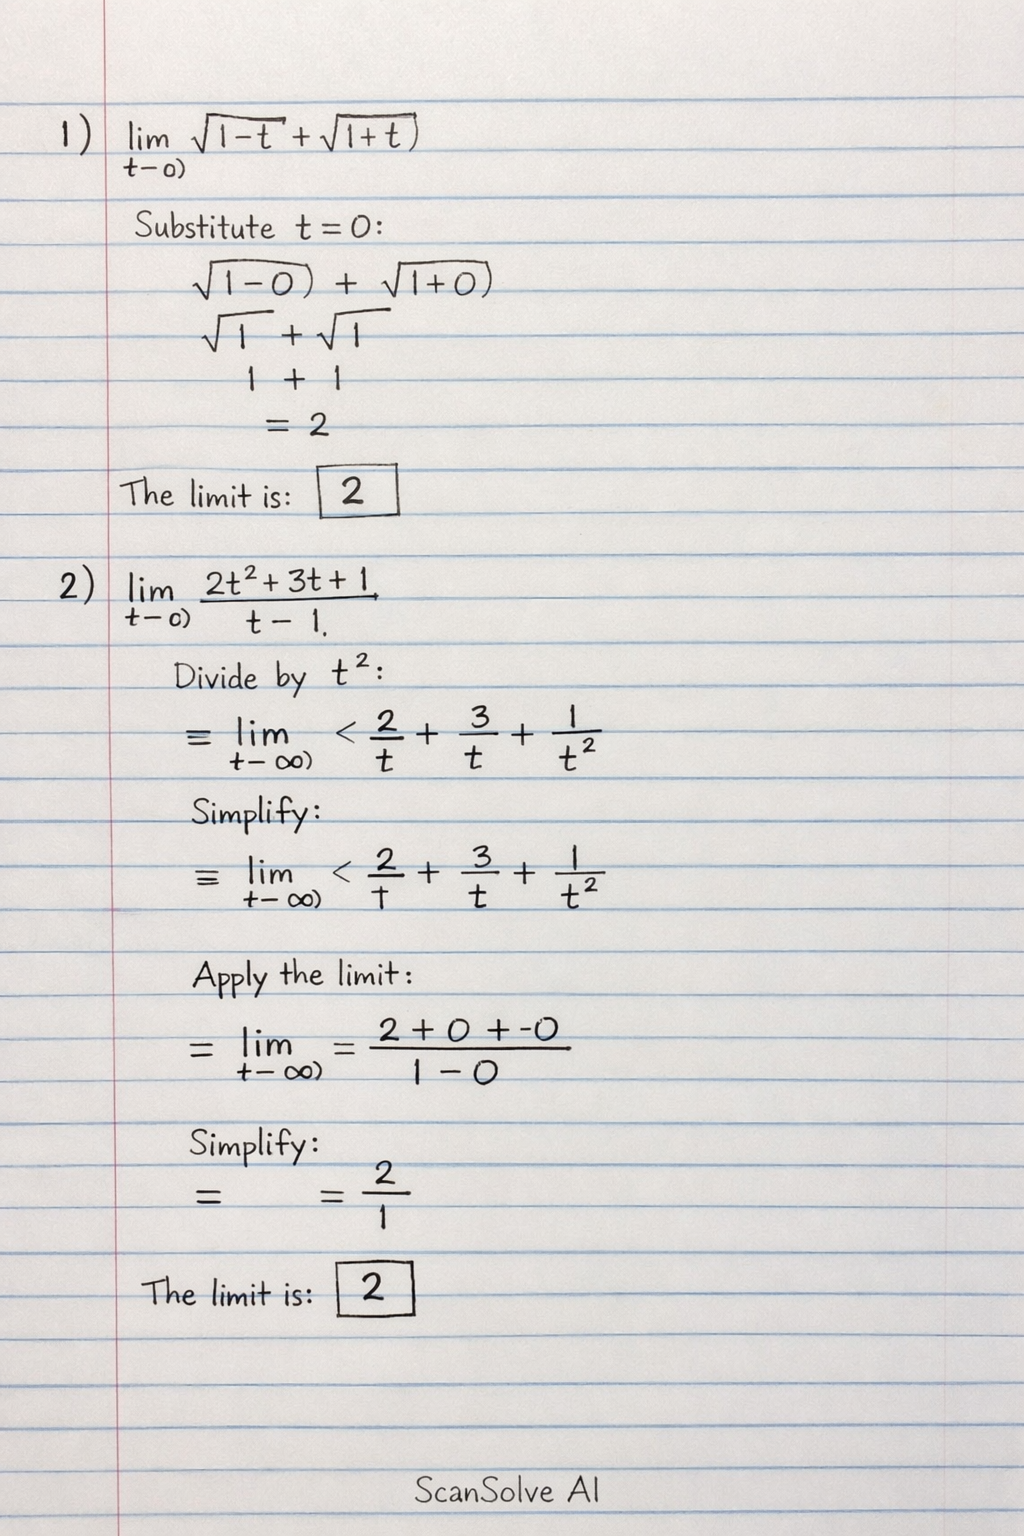 1) lim √(1-t) + √(1+t)
t-0)
Substitute t = 0:
√(1-0) + √(1+0)
√1 + √1
1 + 1
= 2
The limit is: 2
2) lim (2t² + 3t + 1)/(t - 1.)
t-0)
Divide by t²:
≡ lim < 2/t + 3/t + 1/t²
t-∞)
Simplify:
≡ lim < 2/T + 3/t + 1/t²
t-∞)
Apply the limit:
= lim = (2 + 0 + -0)/(1 - 0)
t-∞)
Simplify:
= = 2/1
The limit is: 2
ScanSolve AI